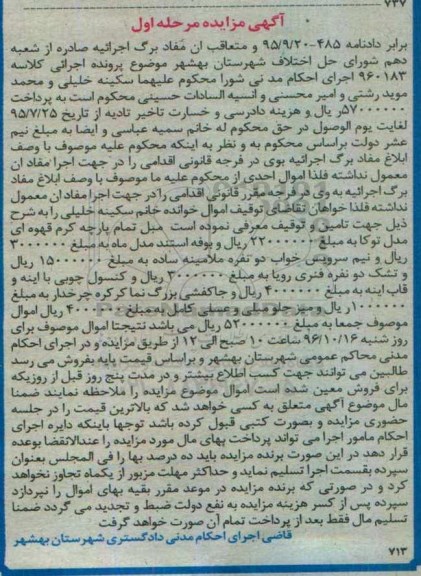 ۷۳۷
آگهی مزایده مرحله اول
برابر دادنامه ۴۸۵-۹۵/۹/۲۰ و متعاقب ان مُفاد برگ اجرائیه صادره از شعبه
دهم شورای حل اختلاف شهرستان بهشهر موضوع پرونده اجرائی کلاسه
۹۶۰۱۸۳ اجرای احکام مد نی شورا محکوم علیهما سکینه خلیلی و محمد
موید رشتی و امیر محسنی و انسیه السادات حسینی محکوم است به پرداخت
۵۷۰۰۰۰۰۰ ریال و هزینه دادرسی و خسارت تاخیر تادیه از تاریخ ۹۵/۷/۲۵
لغایت یوم الوصول در حق محکوم له خانم سمیه عباسی و ایضا به مبلغ نیم
عشر دولت براساس محکوم به و نظر به اینکه محکوم علیه موصوف با وصف
ابلاغ مفاد برگ اجرائیه بوی در فرجه قانونی اقدامی را در جهت اجرا مفاد ان
معمول نداشته فلذا اموال احدی از محکوم علیه ما موصوف با وصف ابلاغ مفاد
برگ اجرائیه به وی در فرجه مقرر قانونی اقدامی را در جهت اجرا مفاد ان معمول
نداشته فلذا خواهان تقاضای توقیف اموال خوانده خانم سکینه خلیلی را به شرح
ذیل جهت تامین و توقیف معرفی نموده است مبل تمام پارچه کرم قهوه ای
مدل توکا به مبلغ ۲۲۰۰۰۰۰۰ ریال و بوفه استند مدل ماه به مبلغ ۳۰۰۰۰۰۰
ریال و نیم سرویس خواب دو نفره ملامینه ساده به مبلغ ۱۵۰۰۰۰۰۰ ریال
و تشک دو نفره فنری رویا به مبلغ ۳۰۰۰۰۰۰ ریال و کنسول چوبی با اینه و
قاب اینه به مبلغ ۴۰۰۰۰۰۰ ریال و جاکفشی بزرگ نما کرکره چرخدار به مبلغ
۱۰۰۰۰۰۰ ریال و میز جلو مبلی و عسلی کامل به مبلغ ۴۰۰۰۰۰۰ ریال اموال
موصوف جمعا به مبلغ ۵۲۰۰۰۰۰۰ ریال می باشد نتیجتا اموال موصوف برای
روز شنبه ۹۶/۱۰/۱۶ ساعت ۱۰ صبح الی ۱۲ از طریق مزایده و در اجرای احکام
مدنی محاکم عمومی شهرستان بهشهر و براساس قیمت پایه بفروش می رسد
طالبین می توانند جهت کسب اطلاع بیشتر و در مدت پنج روز قبل از روزیکه
برای فروش معین شده است اموال موضوع مزایده را ملاحظه نمایند ضمنا
مال موضوع آگهی متعلق به کسی خواهد شد که بالاترین قیمت را در جلسه
حضوری مزایده و بصورت کتبی قبول کرده باشد توجها باینکه دایره اجرای
احکام مامور اجرا می تواند پرداخت بهای مال مورد مزایده را عندالاقتضا بوعده
قرار دهد در این صورت برنده مزایده باید ده درصد بها را فی المجلس بعنوان
سپرده بقسمت اجرا تسلیم نماید و حداکثر مهلت مزبور از یکماه تجاوز نخواهد
کرد و در صورتی که برنده مزایده در موعد مقرر بقیه بهای اموال را نپردازد
سپرده پس از کسر هزینه مزایده به نفع دولت ضبط و تجدید می گردد ضمنا
تسلیم مال فقط بعد از پرداخت تمام آن صورت خواهد گرفت
قاضی اجرای احکام مدنی دادگستری شهرستان بهشهر
۷۱۳